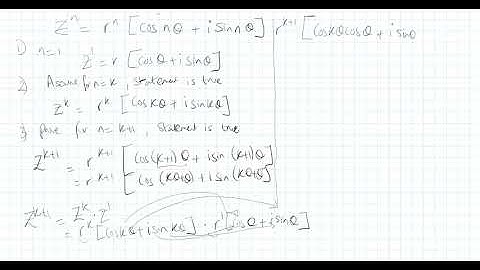 Zⁿ = rⁿ [cos nθ + i sin nθ]
1) n=1
Z¹ = r [cosθ + i sinθ]
2) Assume for n=k, statement is true
Z^k = r^k [cos kθ + i sin kθ]
3) Prove for n=k+1, statement is true
Z^k+1 = r^k+1 [cos(k+1)θ + i sin(k+1)θ]
= r^k+1 [cos(kθ+θ) + i sin(kθ+θ)]
Z^k+1 = Z^k · Z¹
= r^k [cos kθ + i sin kθ] · r¹ [cosθ + i sinθ]
r^k+1 [cos kθ cosθ + i sinθ